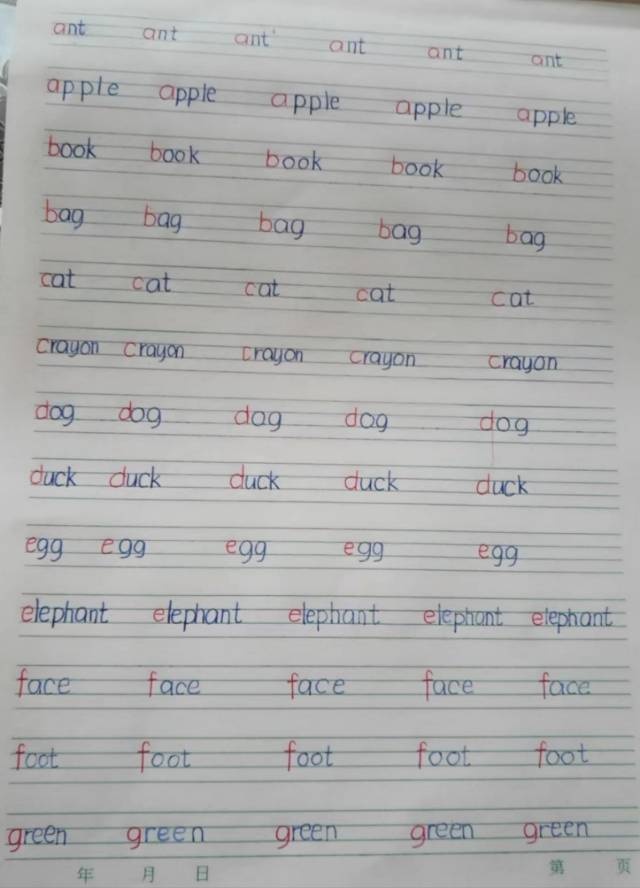 ant ant ant ant ant ant
apple apple apple apple apple
book book book book book
bag bag bag bag bag
cat cat cat cat cat
crayon crayon crayon crayon crayon
dog dog dog dog dog
duck duck duck duck duck
egg egg egg egg egg
elephant elephant elephant elephant elephant
face face face face face
foot foot foot foot foot
green green green green green
年 月 日 第 页